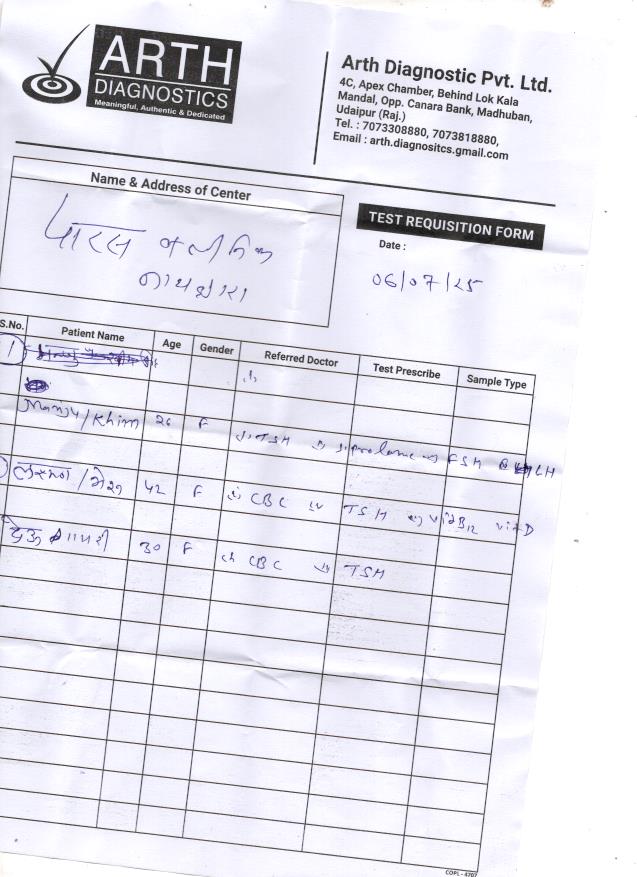 ARTH
DIAGNOSTICS
Meaningful, Authentic & Dedicated
Arth Diagnostic Pvt. Ltd.
4C, Apex Chamber, Behind Lok Kala
Mandal, Opp. Canara Bank, Madhuban,
Udaipur (Raj.)
Tel. : 7073308880, 7073818880,
Email : arth.diagnositcs.gmail.com
Name & Address of Center
पारस क्लीनिक
नाथद्वारा
TEST REQUISITION FORM
Date :
06/07/25
S.No. Patient Name Age Gender Referred Doctor Test Prescribe Sample Type
1
Manju/Khim 26 F TSH FSH LH
42 F CBC TSH vitB12 vitD
30 F CBC TSH
COPL - 4707